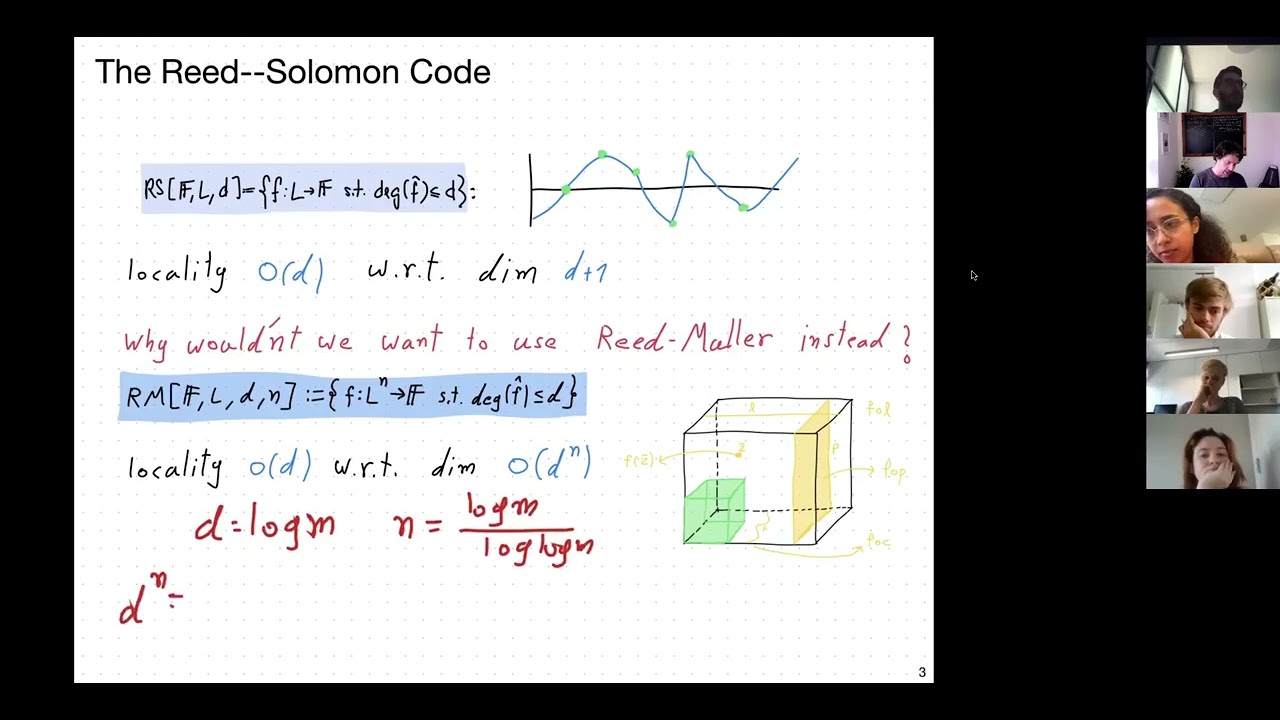 The Reed--Solomon Code
RS[𝔽,L,d]={f:L→𝔽 s.t. deg(f̂)≤d}:
locality O(d) w.r.t. dim d+1
why wouldn't we want to use Reed-Muller instead?
RM[𝔽,L,d,n]:={f:Lⁿ→𝔽 s.t. deg(f̂)≤d}
locality O(d) w.r.t. dim O(dⁿ)
d=log m n= log m / log log m
dⁿ=
l
f∘l
f(z⃗)
z⃗
p
f∘p
f∘c
3